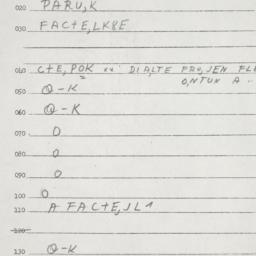 020 PARU,K
030 FACTE,LK8E
040 CTE,POK DIALTE PRO,JEN FLE
O,NTUK A
050 O-K
060 O-K
070 O
080 O
090 O
100 O
110 A FACTE,JL1
120
130 O-K